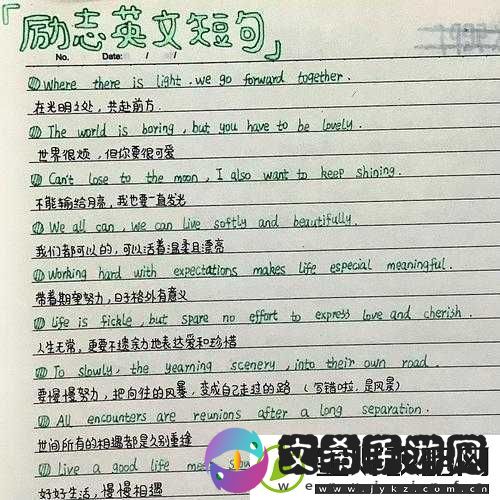 「励志英文短句」
No. Date:
① Where there is light. we go forward together.
在光明之处，共赴前方.
The world is boring, but you have to be lovely.
世界很烦，但你要很可爱
Can't lose to the moon, I also want to keep shining.
不能输给月亮，我也要一直发光
We all can, we can live softly and beautifully.
我们都可以的，可以活着温柔且漂亮
Working hard with expectations makes life especial meaningful.
带着期望努力，日子格外有意义
Life is fickle, but spare no effort to express love and cherish.
人生无常，更要不遗余力地表达爱和珍惜
To slowly, the yearning scenery, into their own road.
要慢慢努力，把向往的风暴，变成自己走过的路（写错啦，是风景）
All encounters are reunions after a long separation.
世间所有的相遇都是久别重逢
Live a good life
好好生活，慢慢相遇
文希手游网
www.jykz.com.cn